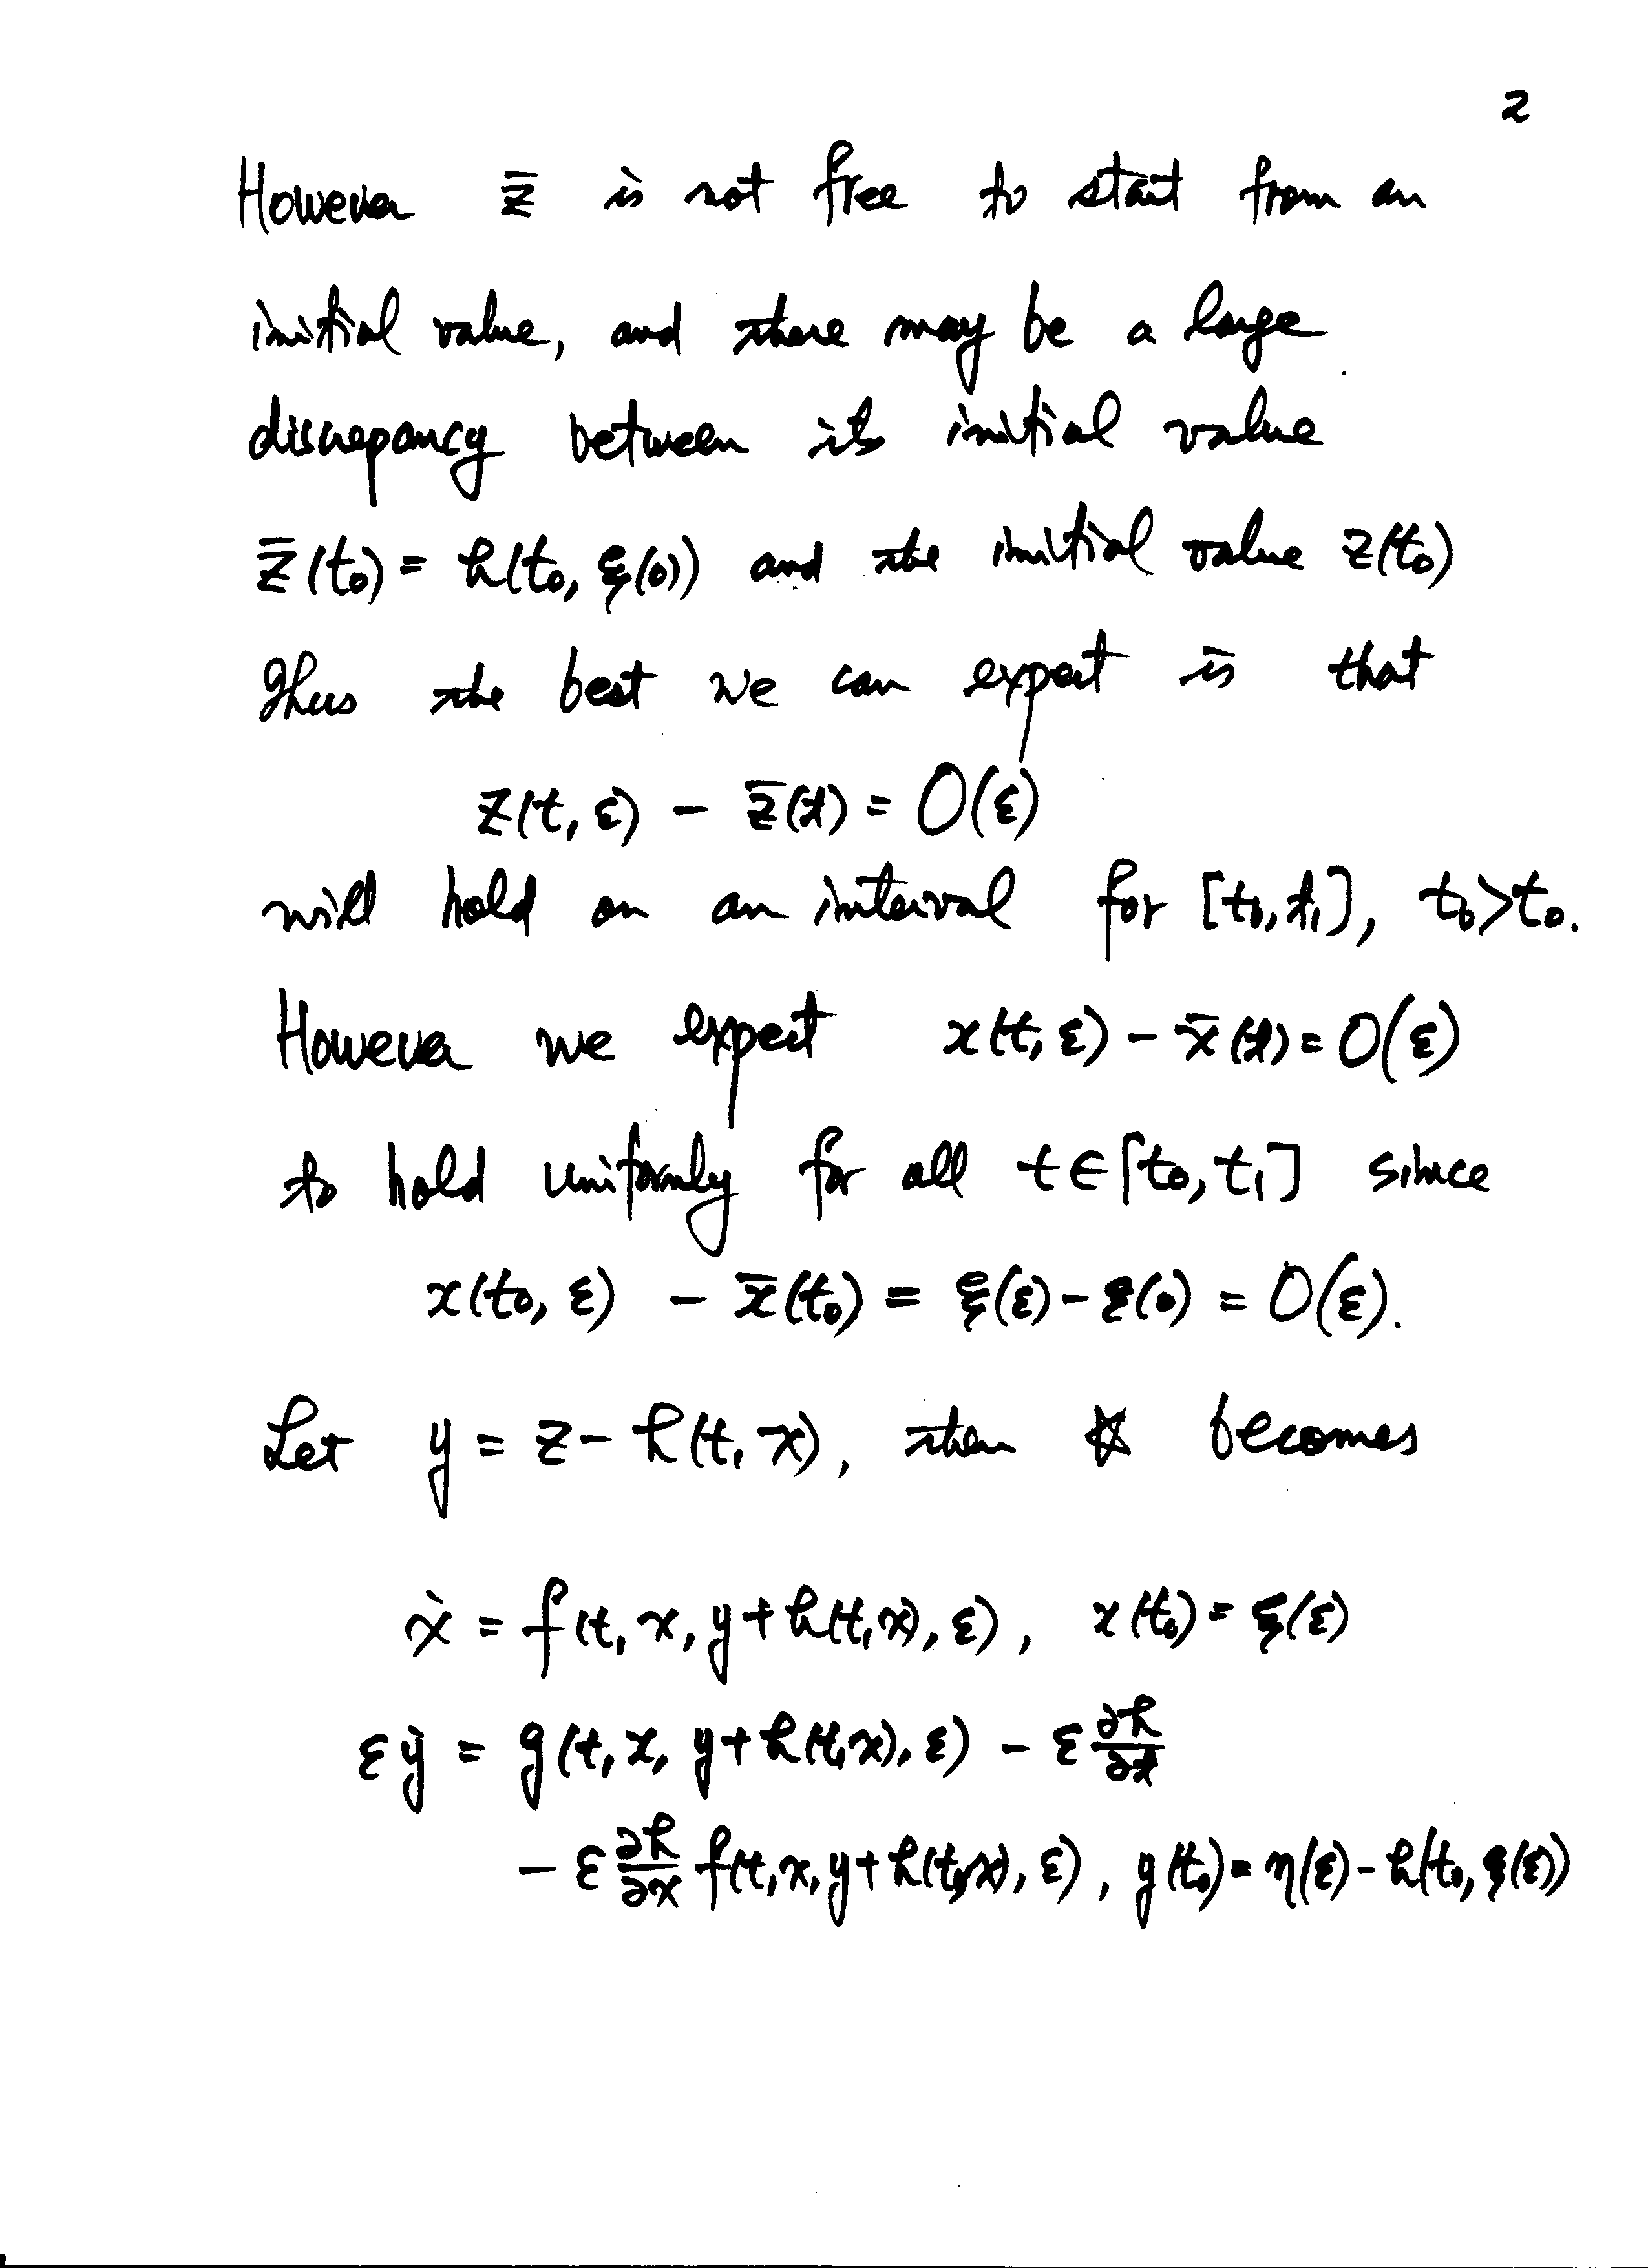 2
However z̄ is not free to start from an
initial value, and there may be a large
discrepancy between its initial value
z̄(t₀) = h(t₀, ξ(0)) and the initial value z(t₀)
Thus the best we can expect is that
z(t, ε) − z̄(t) = O(ε)
will hold on an interval for [t_b, t₁], t_b > t₀.
However we expect x(t, ε) − x̄(t) = O(ε)
to hold uniformly for all t ∈ [t₀, t₁] since
x(t₀, ε) − x̄(t₀) = ξ(ε) − ξ(0) = O(ε).
Let y = z − h(t, x), then ☆ becomes
ẋ = f(t, x, y + h(t, x), ε), x(t₀) = ξ(ε)
εẏ = g(t, x, y + h(t, x), ε) − ε ∂h/∂t
− ε ∂h/∂x f(t, x, y + h(t, x), ε), y(t₀) = η(ε) − h(t₀, ξ(ε))